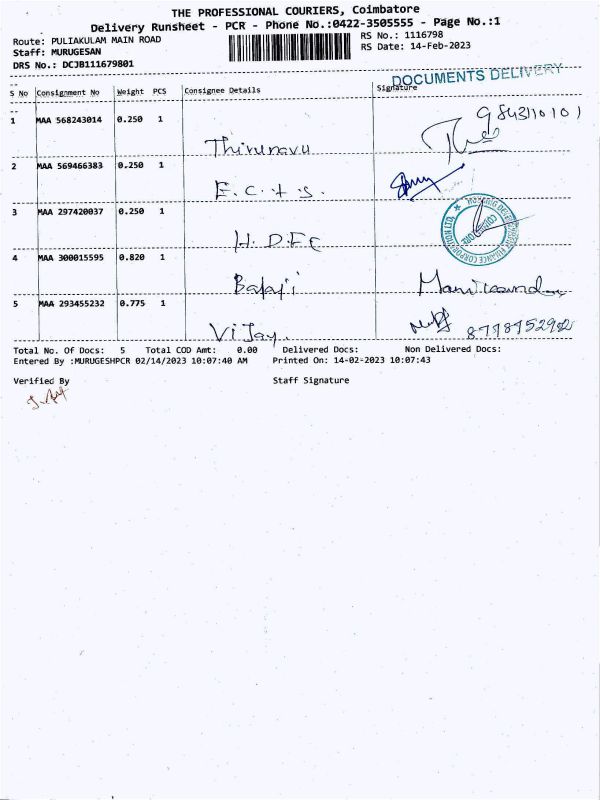 THE PROFESSIONAL COURIERS, Coimbatore
Delivery Runsheet - PCR - Phone No.:0422-3505555 - Page No.:1
Route: PULIAKULAM MAIN ROAD
Staff: MURUGESAN
DRS No.: DCJB111679801
RS No.: 1116798
RS Date: 14-Feb-2023
DOCUMENTS DELIVERY
S No Consignment No Weight PCS Consignee Details Signature
1 MAA 568243014 0.250 1
Thirunavu
2 MAA 569466383 0.250 1
E.C.I.S.
3 MAA 297420037 0.250 1
H.DFC
4 MAA 300015595 0.820 1
Balaji
5 MAA 293455232 0.775 1
Vijay.
Total No. Of Docs: 5 Total COD Amt: 0.00 Delivered Docs: Non Delivered Docs:
Entered By :MURUGESHPCR 02/14/2023 10:07:40 AM Printed On: 14-02-2023 10:07:43
Verified By Staff Signature